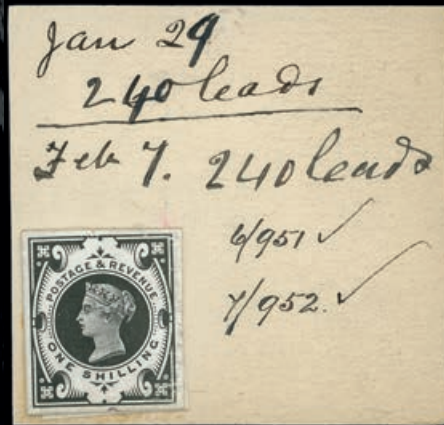 Jan 29
240 leads
Feb 7. 240 leads
6/951 ✓
7/952. ✓
POSTAGE & REVENUE
ONE SHILLING